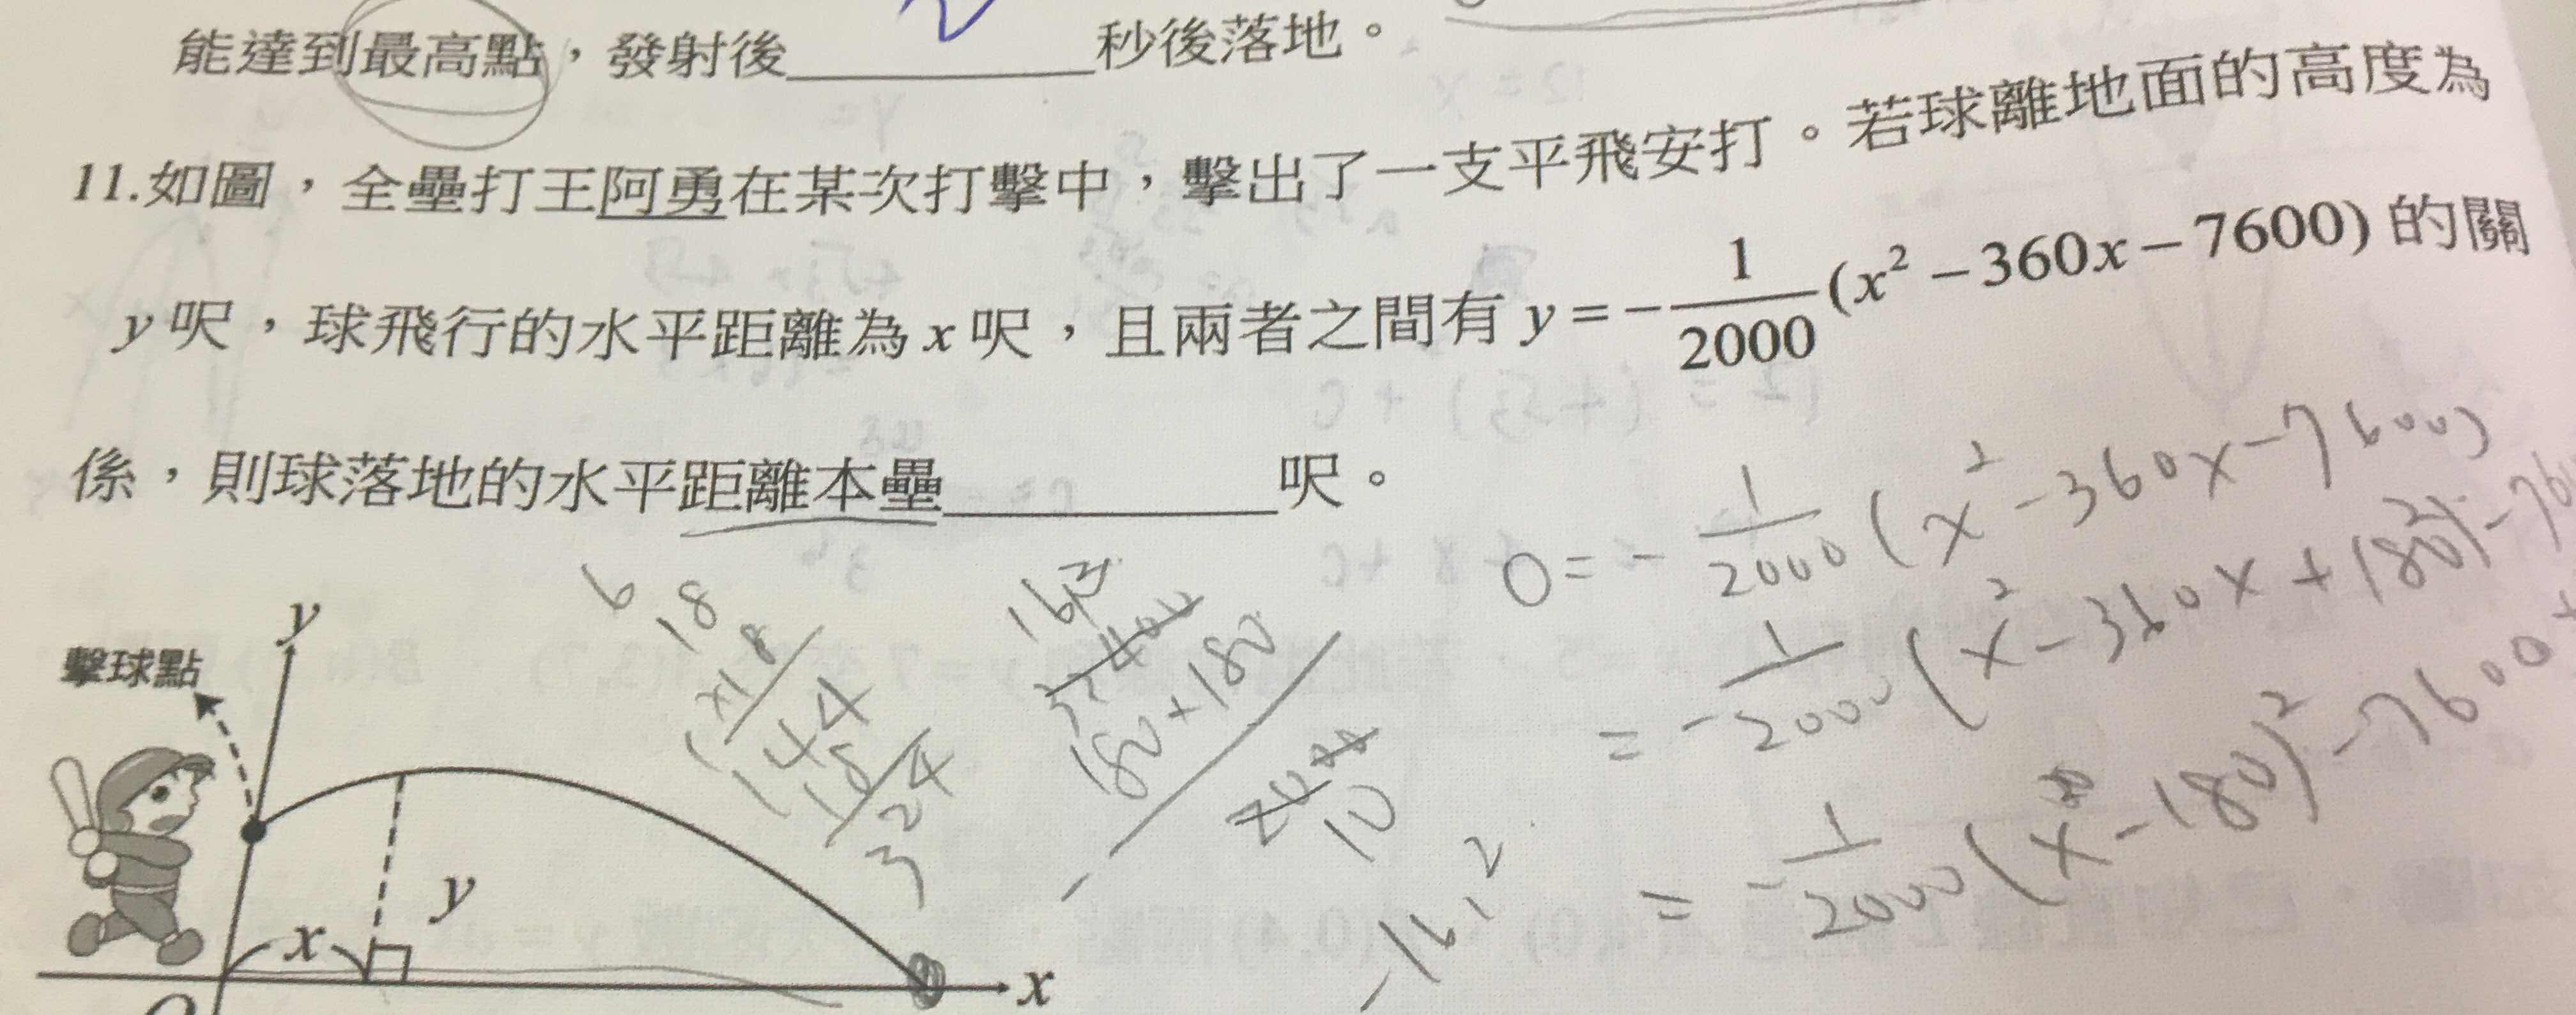 能達到最高點，發射後________秒後落地。
11.如圖，全壘打王阿勇在某次打擊中，擊出了一支平飛安打。若球離地面的高度為
y呎，球飛行的水平距離為x呎，且兩者之間有 y=-1/2000(x²-360x-7600) 的關
係，則球落地的水平距離本壘________呎。
0=-1/2000(x²-360x-7600)
=-1/2000(x²-360x+180²)-760
=-1/2000(x-180)²-7600+
6
18
x18
144
18
324
3
162
180×180
10
-16.2
擊球點
y
y
x
x
O